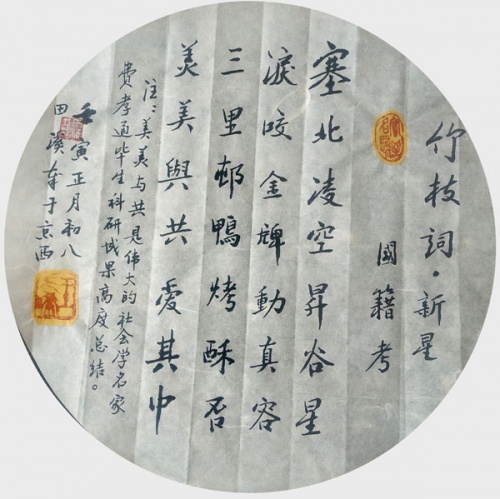 竹枝詞·新星
國籍考
塞北凌空昇谷星
淚咬金牌動真容
三里邨鴨烤酥否
美美與共愛其中
注：美美与共是伟大的社会学名家
费孝通毕生科研成果高度总结。
壬寅正月初八
田溪奉于京西